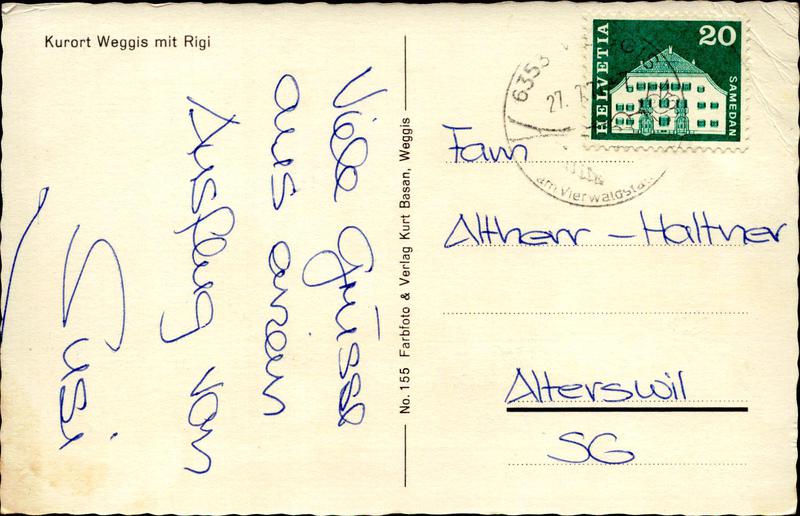 Kurort Weggis mit Rigi
Viele Grüsse
aus
Ausflug von
Susi
No. 155 Farbfoto & Verlag Kurt Basan, Weggis
6353
27. 7.
am Vierwaldstä
HELVETIA
20
SAMEDAN
Fam
Altherr - Haltner
Alterswil
SG